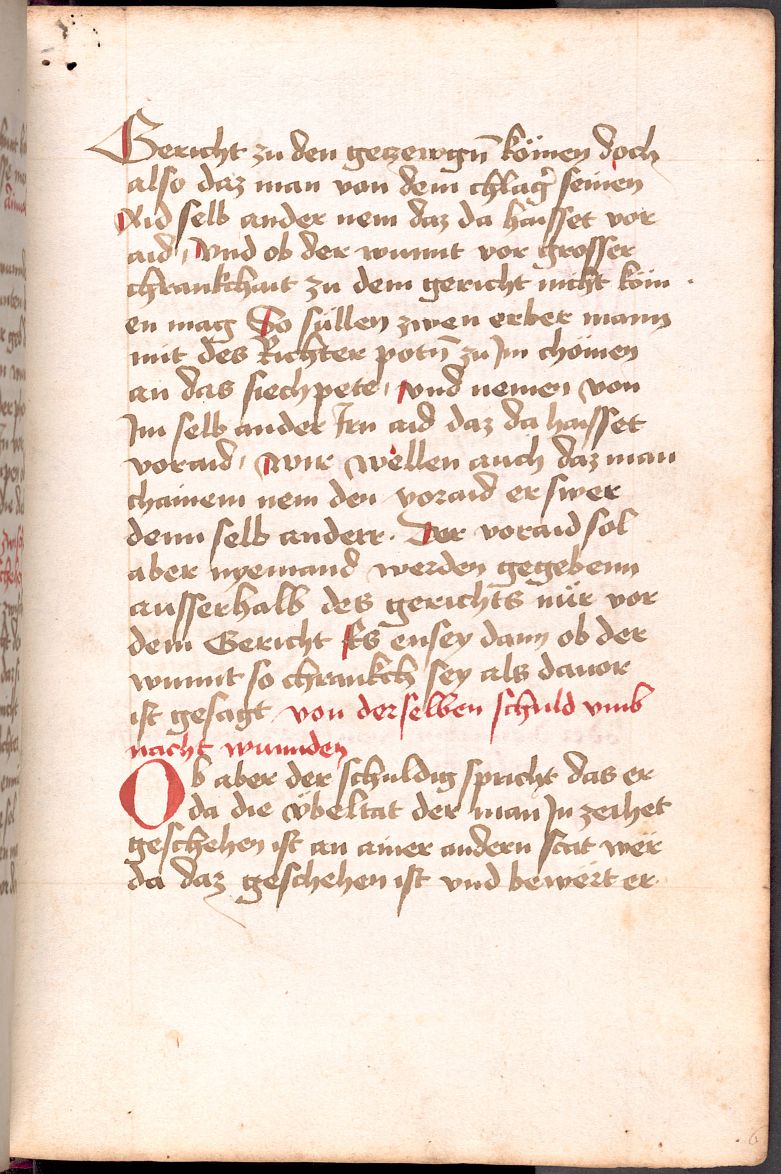 Gericht zu den getzewgñ köm̄en doch
also daz man von dem chlag̃ seinen
Aid selb ander nem daz da haisset vor
aid, vnd ob der wunnt vor grosser
chrankchait zu dem gericht nicht köm
en mag So sullen zwen erber mann
mit des Richter potñ zu Im chömen
an das siechpete, vnd nemen von
Im selb ander Irn aid daz da haisset
voraid, wir wellen auch daz man
chainem nem den voraid er swer
denn selb anderr. Der voraid sol
aber nyemand werden gegebenn
ausserhalb des gerichts nür vor
dem Gericht Es ensey dann ob der
wunnt so chrankch sey als dauor
ist gesagt von derselben schuld vmb
nacht wunnden
Ob aber der schuldig spricht das er
da die vbeltat der man In zeihet
geschehen ist an ainer andern stat wër
da daz geschehen ist vnd bewërt er
6